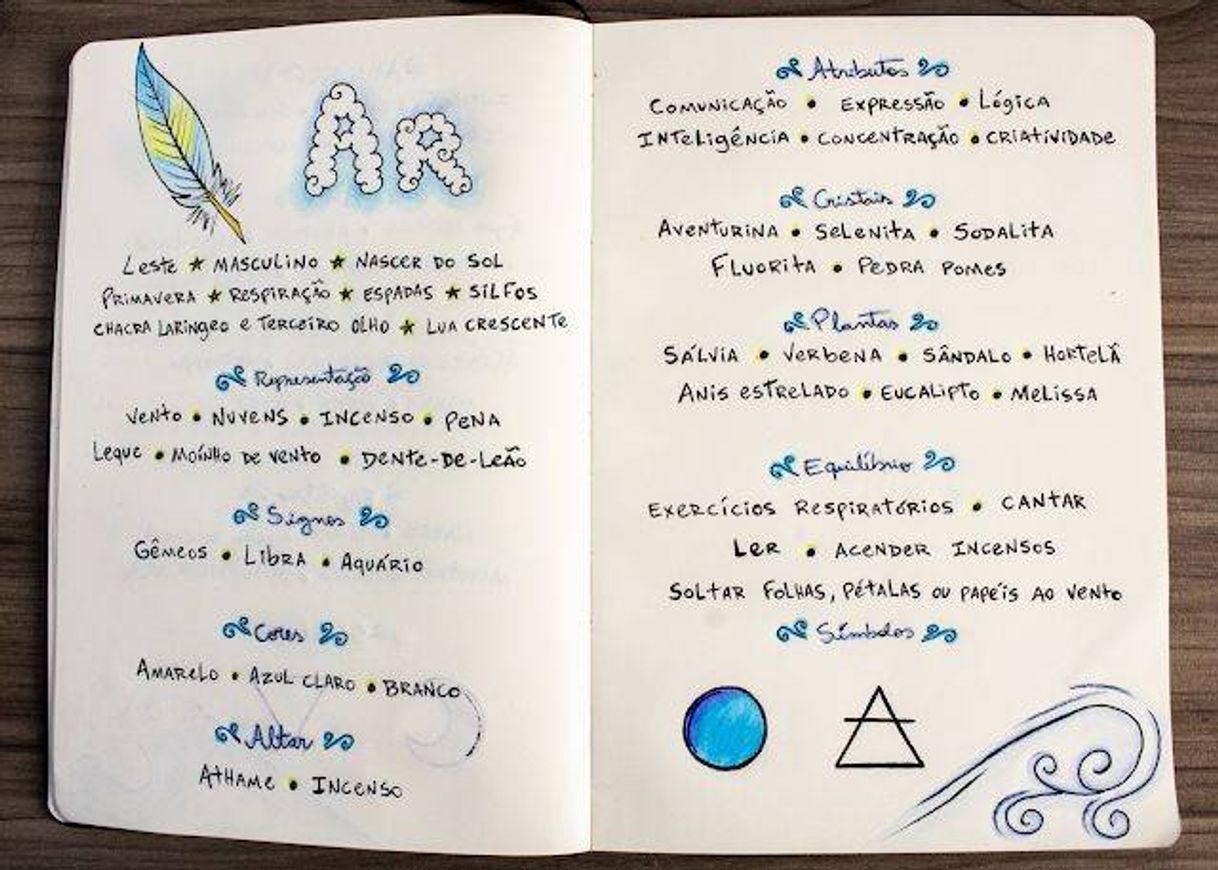 AR
Leste ★ MASCULINO ★ NASCER DO SOL
PRIMAVERA ★ RESPIRAÇÃO ★ ESPADAS ★ SILFOS
CHACRA LARINGEO E TERCEIRO OLHO ★ LUA CRESCENTE
Representação
VENTO • NUVENS • INCENSO • PENA
Leque • MOÍNHO DE VENTO • DENTE-DE-LEÃO
Signos
GÊMEOS • LIBRA • AQUÁRIO
Cores
AMARELO • AZUL CLARO • BRANCO
Altar
ATHAME • INCENSO
Atributos
COMUNICAÇÃO • EXPRESSÃO • LÓGICA
INTELIGÊNCIA • CONCENTRAÇÃO • CRIATIVIDADE
Cristais
AVENTURINA • SELENITA • SODALITA
FLUORITA • PEDRA POMES
Plantas
SÁLVIA • VERBENA • SÂNDALO • HORTELÃ
ANIS ESTRELADO • EUCALIPTO • MELISSA
Equilíbrio
EXERCÍCIOS RESPIRATÓRIOS • CANTAR
LER • ACENDER INCENSOS
SOLTAR FOLHAS, PÉTALAS OU PAPÉIS AO VENTO
Símbolos